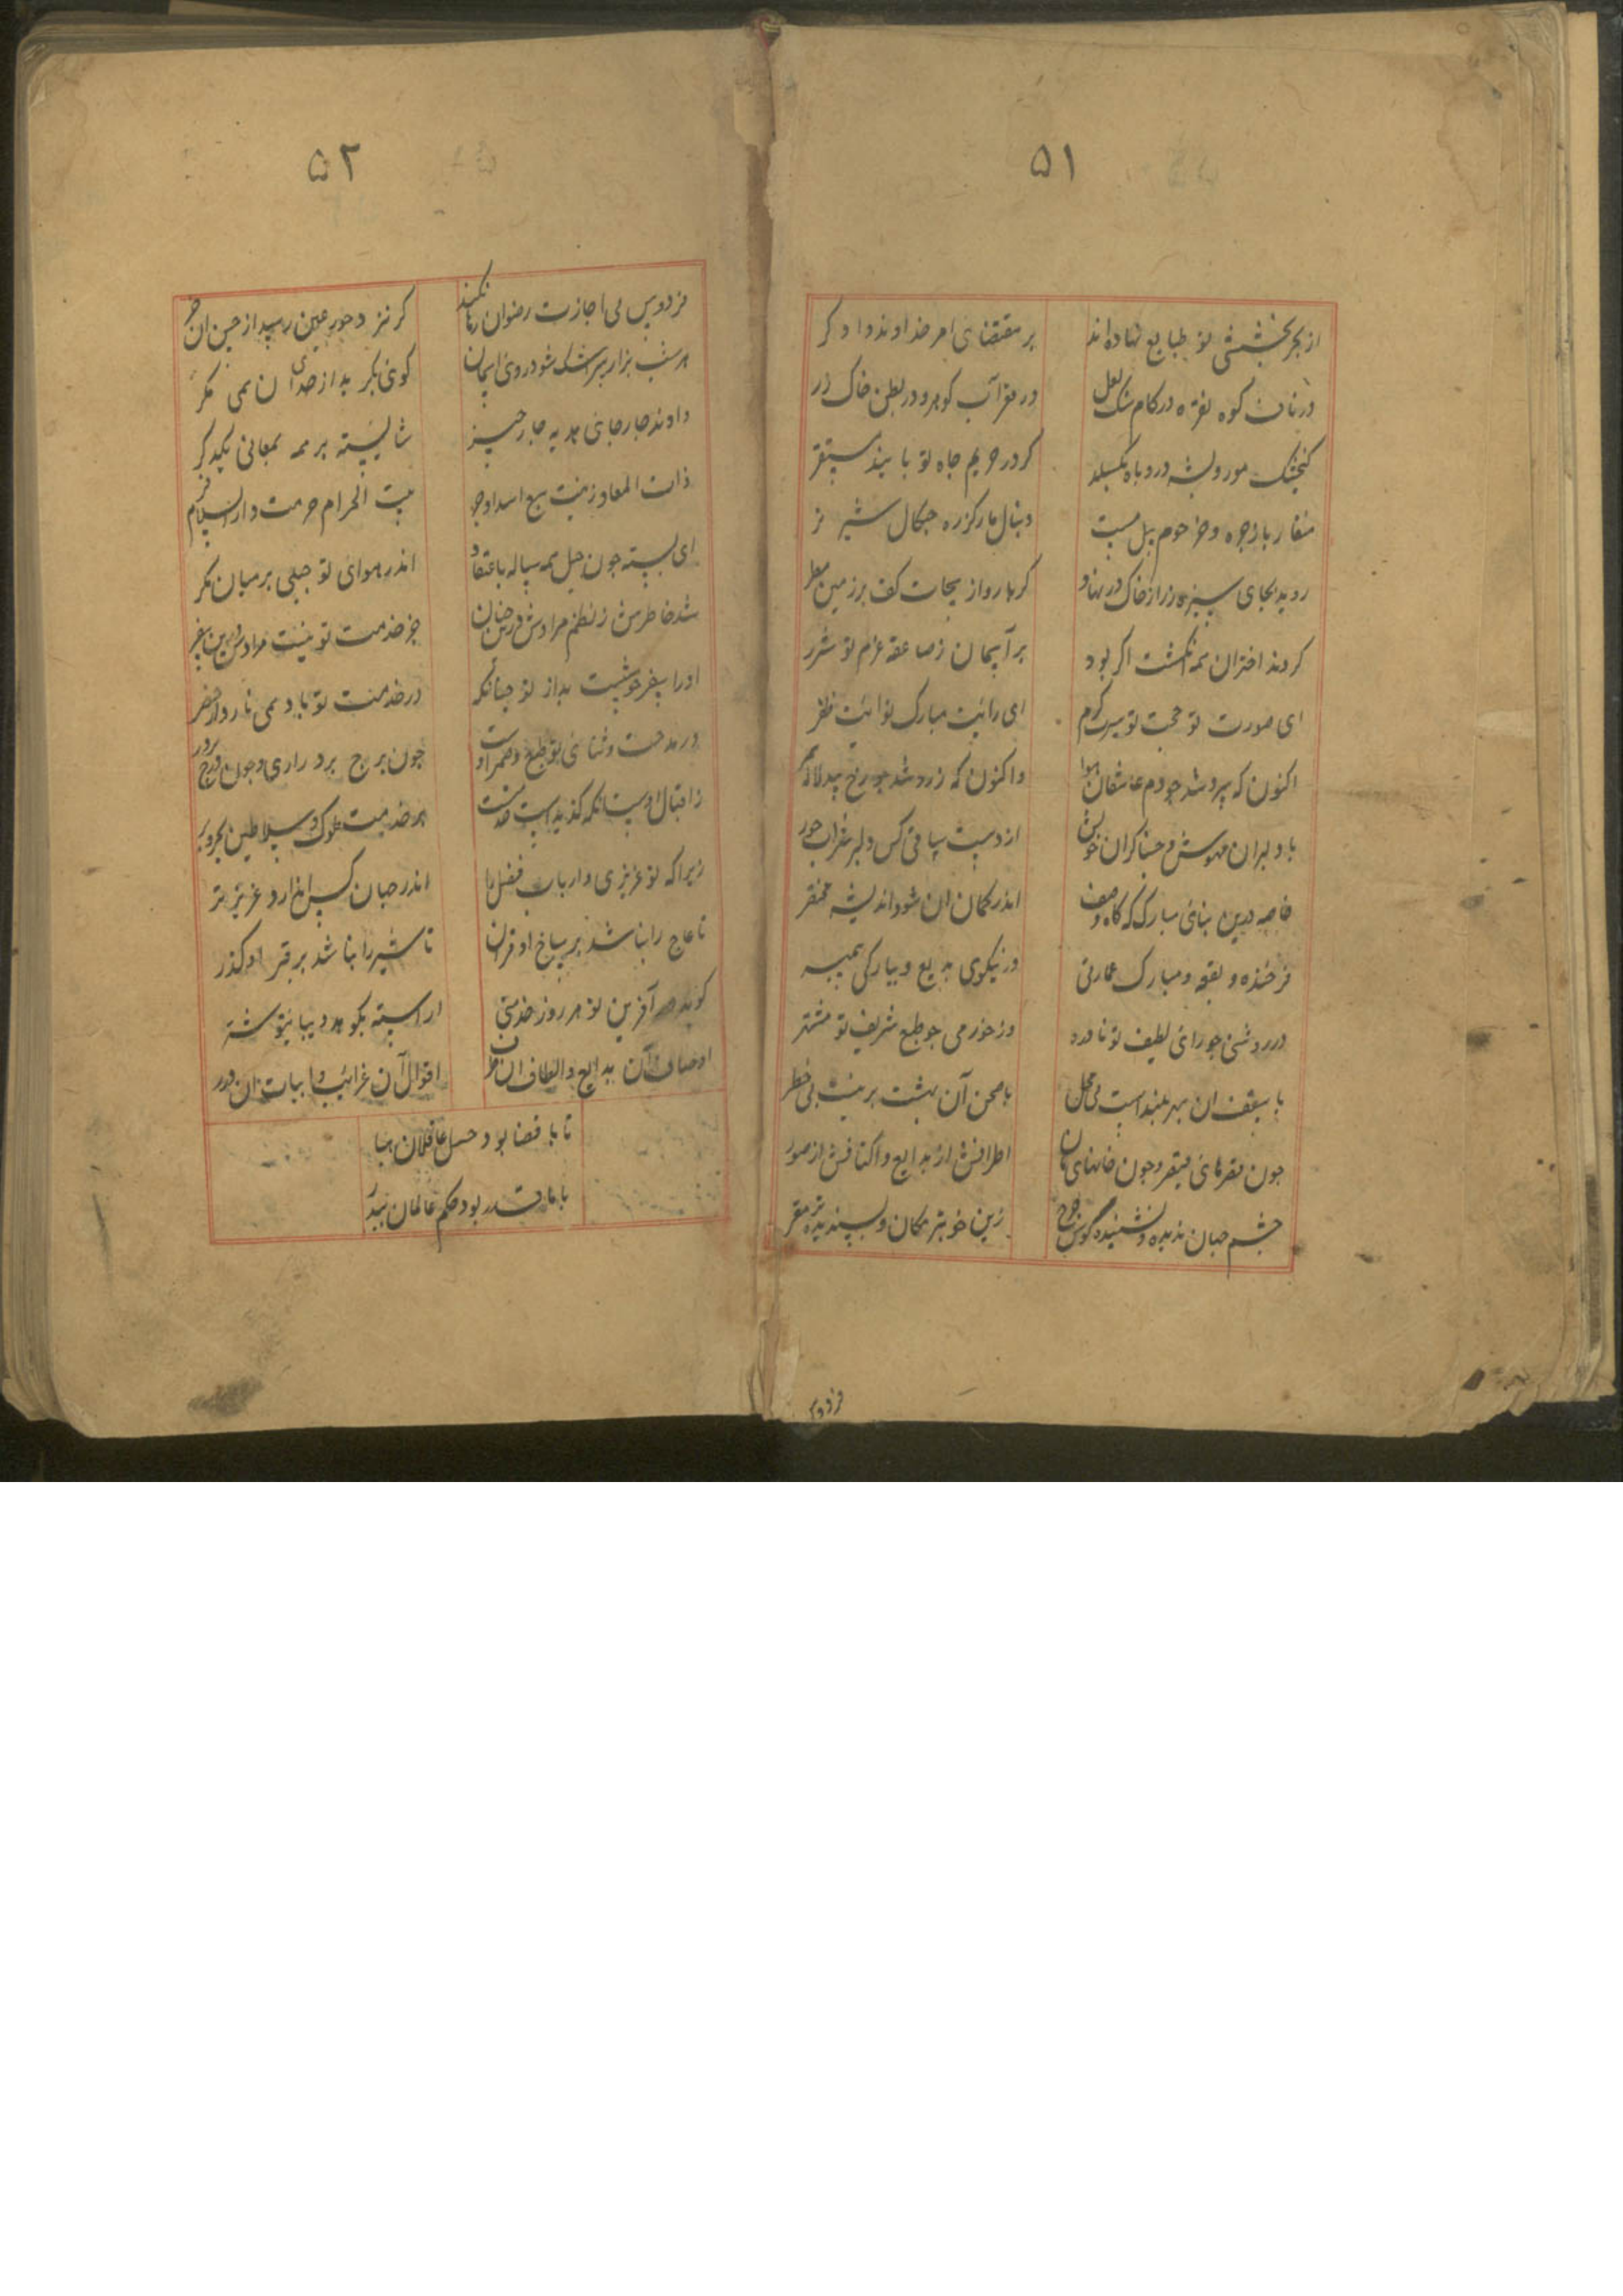 ۵۱
از بحر بخشش تو طبایع نهاده‌اند بر مقتضای امر خداوند دادگر
در ناف کوه نقره در کام سنگ لعل در مقر آب کوهر و در بطن خاک زر
کنجشک مور و پشه در و باه بکسلد کر در حریم جاه تو یابند مستقر
منقار باز جره و خرطوم پیل مست دنبال مار کرزه جنکال شیر نر
روید بجای سبزه زر از خاک در بهار کر هاروار یجات کف بر زمین مطر
کردند اختران همه انکشت اکر بود بر آسمان ز صاعقه عزم تو شرر
ای صورت تو حجت تو سیر کرم ای رایت مبارک تو ائت ظفر
اکنون که سرد شد چو دم عاشقان هوا واکنون که زرد شد چو رخ بیدلان
با دلبران مهوش و خنیاکران خوش از دست ساقی کش دلبر شراب خور
خاصه درین بنای مبارک که کاه وصف اندر کمان آن شود اندیشه مختصر
فرخنده و بقعه و مبارک عمارتی در نیکوی بدیع و بیارکی سمر
در روشنی چو رای لطیف تو نامور در خرمی چو طبع شریف تو مشتهر
با سقف آن سپهر بلند است بی محل با صحن آن بهشت برینست بی خطر
جون مقرهای قیصر و جون خانهای خان اطرافش از بدایع و اکنافش از صور
چشم جهان ندیده و نشنیده کوش چرخ زین خوبتر مکان و پسندیده‌تر مقر
فردوس
۵۲
فردوس بی اجازت رضوان رها کند کر نزد حور عین رسد از حسن آن خبر
هر شب هزار بر شک شود روی آسمان کوئی بکر بداز صدای آن نمی مکر
دادند چار جای بدیه چار چیز شایسته بر همه بمعانی یکدکر
ذات العماد زینت بیت الحرام حرمت و دار السلام فر
ای بسته جون جبل همه ساله باعتقاد اندر هوای تو جبلی بر میان کمر
شد خاطرش ز نظم مرادش جز خدمت تو نیست مرادش
او را سفر خوشست در خدمت تو باد همی تا رود از حضر
در مدحت و ثنای تو طبع و ضمیر او جون برج پر دراری و جون درج پر درر
ز اقبال تو است انکه کذیداست خدمتت بر خدمت ملوک و سلاطین بحر و بر
زیرا که تو عزیزی و ارباب فضل را اندر جهان کس ندارد عزیزتر
تا عاج را بناشد بر ساخ او قران تا شیر را بناشد بر قبر او کذر
کوید هر آفرین تو هر روز خدمتی اراسته بکوهر و دیبا
اوصاف آن بدایع و الطاف آن طرف اقوال آن غرایب و ابیات آن درر
تا با قضا بود حسل عاقلان هبا
با ما قدر بود حکم عالمان هدر